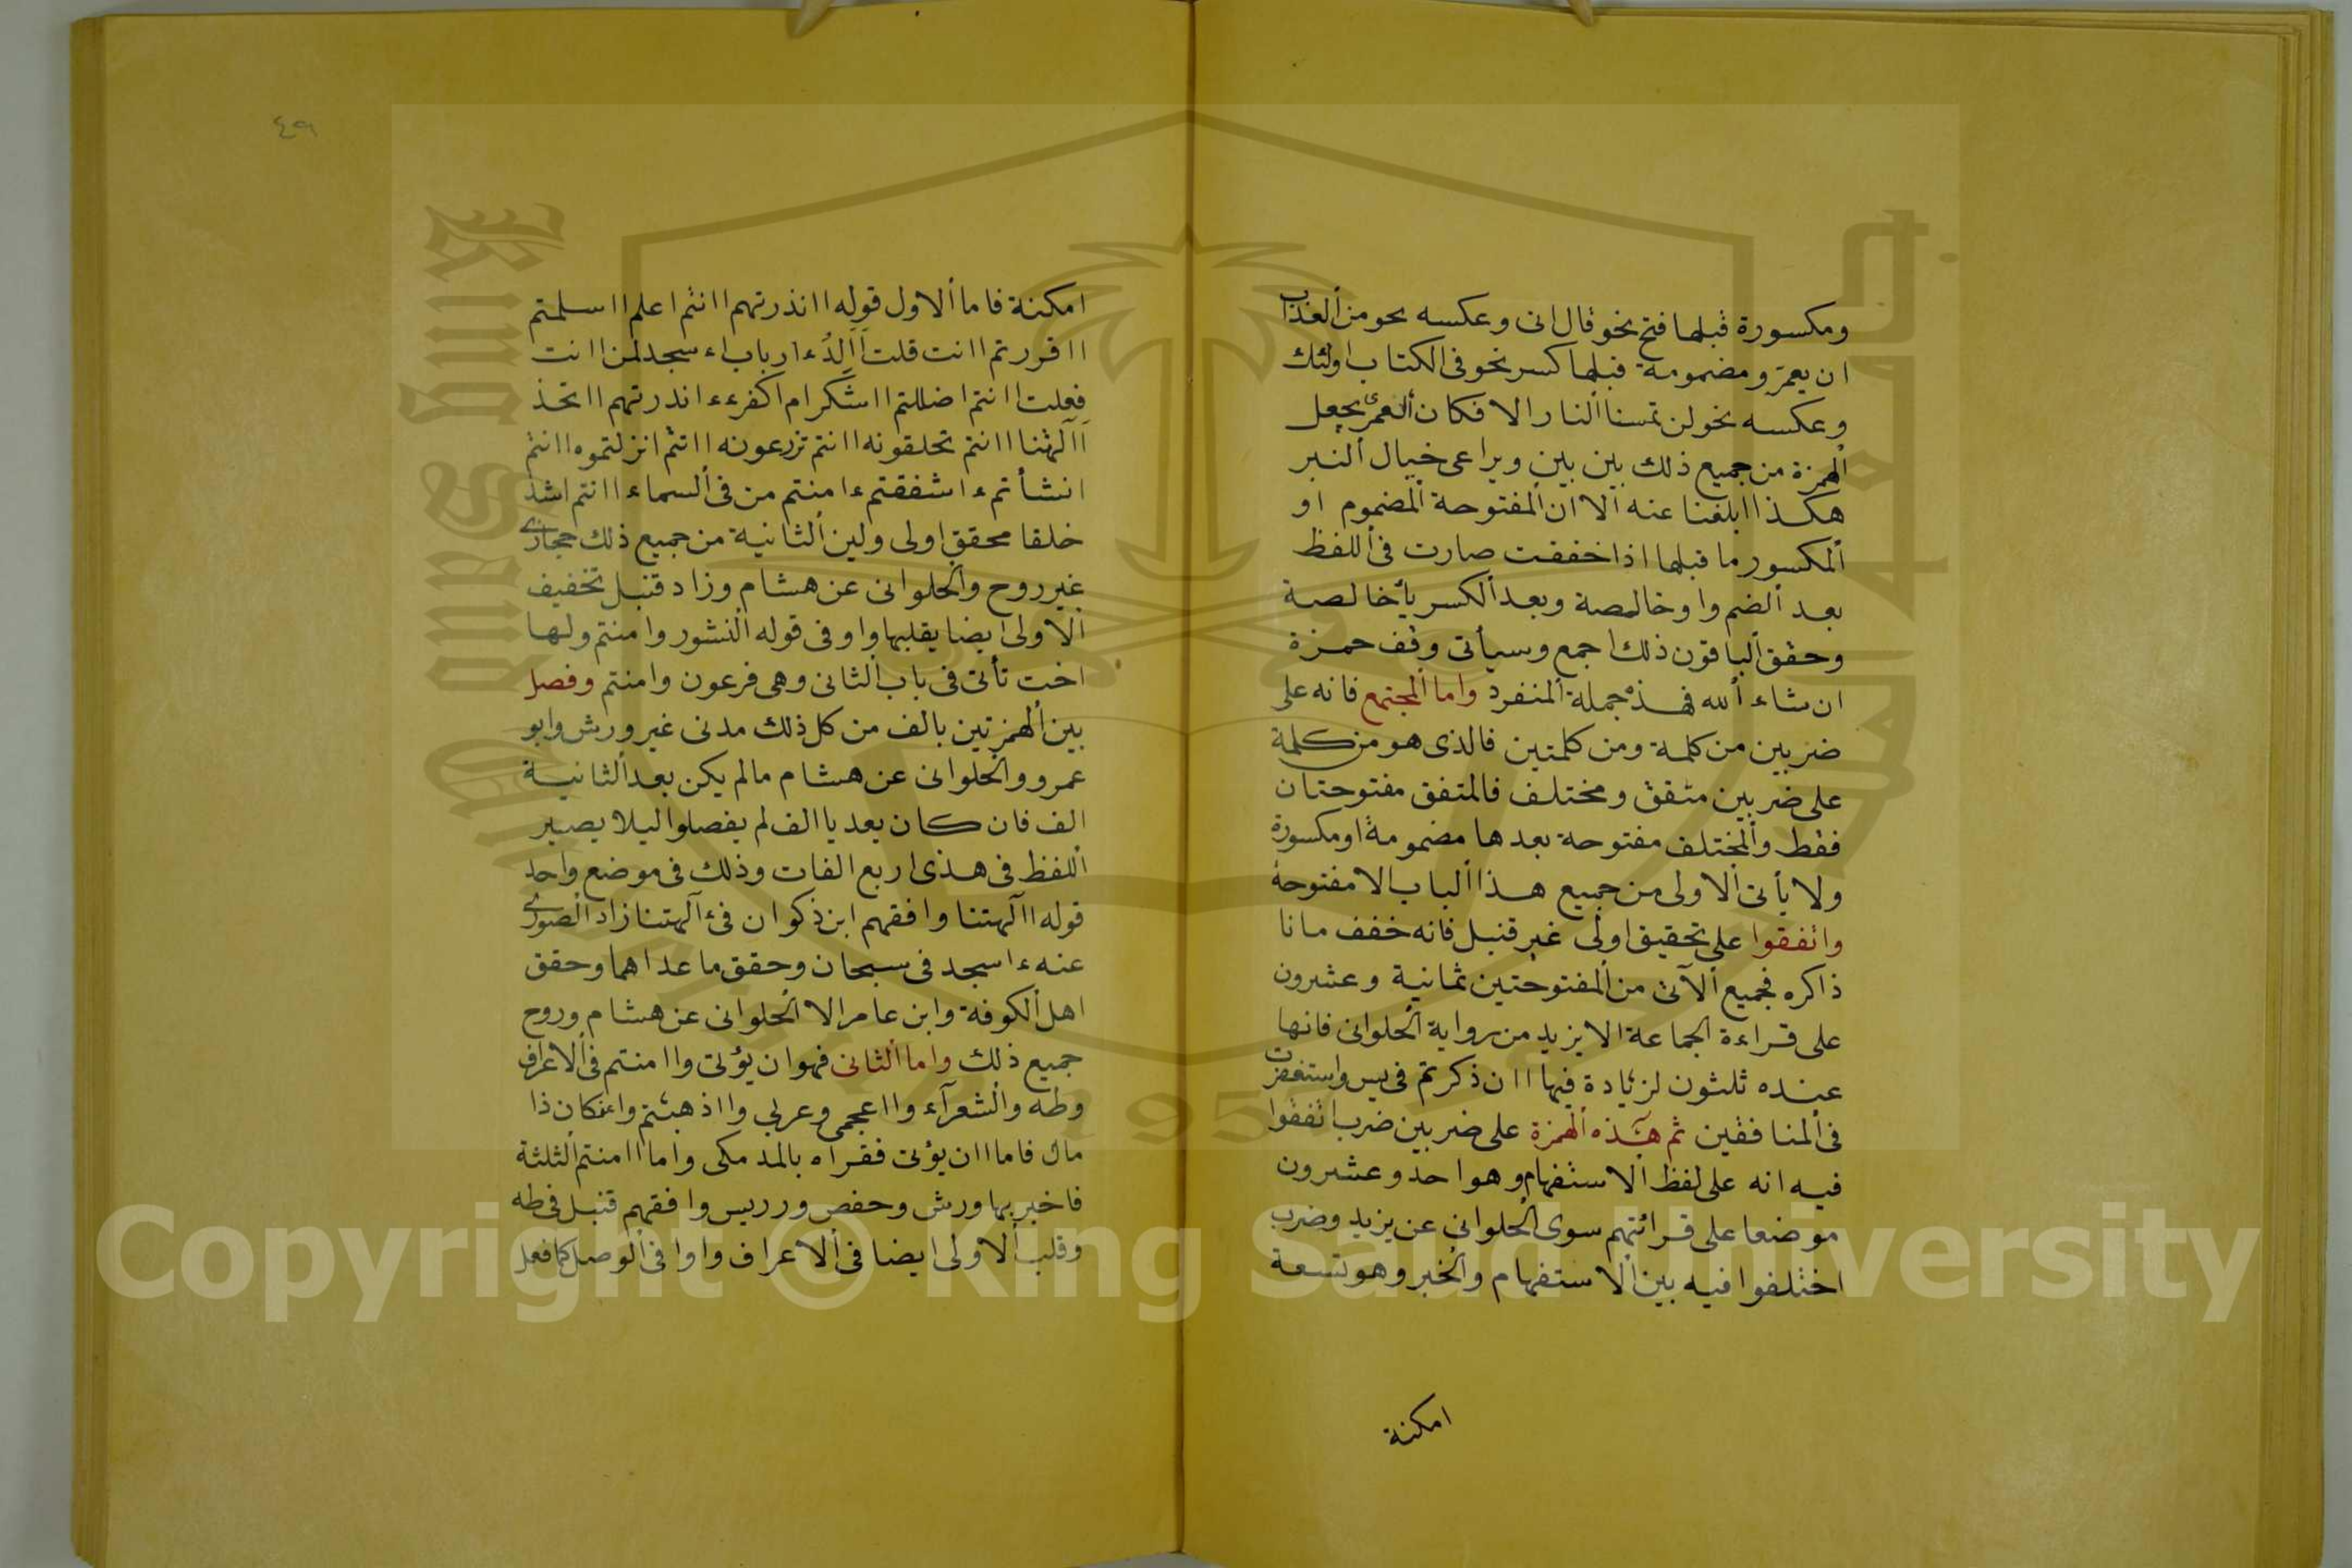 ومكسورة قبلها فتح نحو قال انى وعكسه نحو من ألعذاب
ان يعمر ومضمومة قبلها كسر نحو فى الكتاب اولئك
وعكسه نحو لن تمسنا ألنار الا فكان ألعمرى يجعل
ألهمزة من جميع ذلك بين بين ويراعى خيال ألنبر
هكذا ابلغنا عنه ألا ان ألمفتوحة ألمضموم او
ألمكسور ما قبلها اذا خففت صارت فى أللفظ
بعد ألضم واو خالصة وبعد ألكسر يأخالصة
وحقق ألباقون ذلك اجمع وسيأتى وقف حمزة
ان شاء ألله فهذه جملة ألمنفرد واما ألمجتمع فانه على
ضربين من كلمة ومن كلمتين فالذى هو من كلمة
على ضربين متفق ومختلف فالمتفق مفتوحتان
فقط وألمختلف مفتوحة بعدها مضمومة او مكسورة
ولا يأتى ألاولى من جميع هذا ألباب الا مفتوحة
واتفقوا على تحقيق اولى غير قنبل فانه خفف ما نا
ذاكره فجميع ألآتى من ألمفتوحتين ثمانية وعشرون
على قراءة الجماعة الا يزيد من رواية ألحلوانى فانها
عنده ثلثون لزيادة فيها اان ذكرتم فى يس واستغفرت
فى ألمنافقين ثم هذه ألهمزة على ضربين ضرب اتفقوا
فيه انه على لفظ ألاستفهام وهو احد وعشرون
موضعا على قرائتهم سوى ألحلوانى عن يزيد وضرب
اختلفوا فيه بين ألاستفهام وألخبر وهو تسعة
امكنة
٤٩
امكنة فاما ألاول قوله اانذرتهم اانتم اعلم ااسلمتم
ااقررتم اانت قلت أألد ءارباب ءاسجد لمن اانت
فعلت اانتم اضللتم ااشكر ام اكفر ءءانذرتهم ااتخذ
أآلهتنا اانتم تخلقونه اانتم تزرعونه اانتم انزلتموه اانتم
انشأتم ءاشفقتم ءامنتم من فى ألسماء اانتم اشد
خلقا محقق اولى ولين ألثانية من جميع ذلك حجازى
غير روح وألحلوانى عن هشام وزاد قنبل تخفيف
ألاولى ايضا يقلبها واو فى قوله ألنشور وامنتم ولها
اخت تأتى فى باب ألثانى وهى فرعون وامنتم وفصل
بين ألهمزتين بالف من كل ذلك مدنى غير ورش وابو
عمرو وألحلوانى عن هشام مالم يكن بعد ألثانية
الف فان كان بعد يا الف لم يفصلوا ليلا يصير
أللفظ فى هذى اربع الفات وذلك فى موضع واحد
قوله اآلهتنا وافقهم ابن ذكوان فى ءآلهتنا زاد ألصورى
عنه ءاسجد فى سبحان وحقق ما عداهما وحقق
اهل ألكوفة وابن عامر الا ألحلوانى عن هشام وروح
جميع ذلك واما ألثانى فهو ان يؤتى واامنتم فى ألاعراف
وطه وألشعرآء وااعجمى وعربى وااذهبتم واءنكان ذا
مال فاما اان يؤتى فقراه بالمد مكى واما اامنتم ألثلثة
فاخبر بها ورش وحفص ورويس وافقهم قنبل فى طه
وقلب ألاولى ايضا فى ألاعراف واوا فى ألوصل كما فعل
Copyright © King Saud University